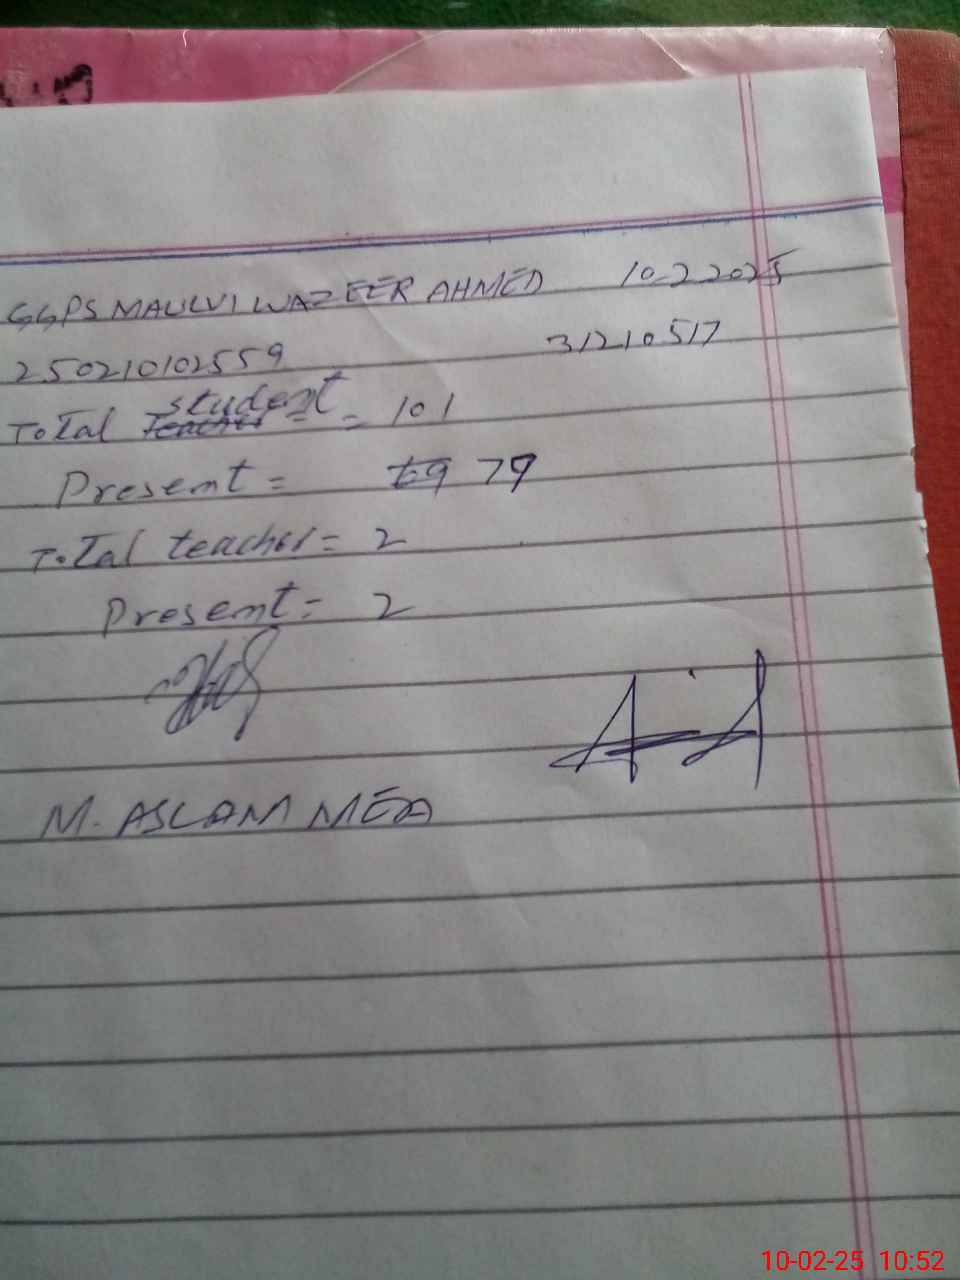 GGPS MAULVI WAZEER AHMED 10-2-2025
250210102559 31210517
Total student = 101
Present = 79
Total teacher = 2
Present = 2
M. ASLAM MEA
10-02-25 10:52